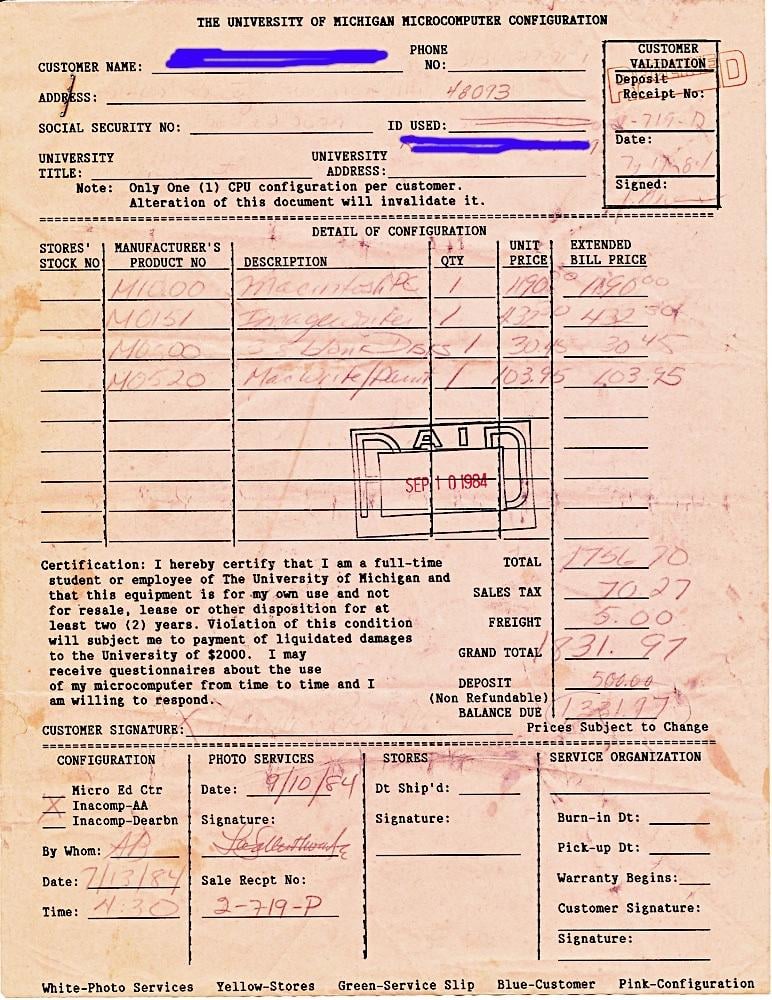 THE UNIVERSITY OF MICHIGAN MICROCOMPUTER CONFIGURATION
CUSTOMER NAME:
PHONE NO:
CUSTOMER VALIDATION
Deposit Receipt No:
ADDRESS: 48093
SOCIAL SECURITY NO: ID USED:
Date:
UNIVERSITY TITLE: UNIVERSITY ADDRESS:
Signed:
Note: Only One (1) CPU configuration per customer.
Alteration of this document will invalidate it.
DETAIL OF CONFIGURATION
STORES' STOCK NO MANUFACTURER'S PRODUCT NO DESCRIPTION QTY UNIT PRICE EXTENDED BILL PRICE
Macintosh PC 1
M0151 Imagewriter 1
1 30.45 30 45
M0520 MacWrite/Paint 1 103.95 103.95
PAID
SEP 10 1984
Certification: I hereby certify that I am a full-time
student or employee of The University of Michigan and
that this equipment is for my own use and not
for resale, lease or other disposition for at
least two (2) years. Violation of this condition
will subject me to payment of liquidated damages
to the University of $2000. I may
receive questionnaires about the use
of my microcomputer from time to time and I
am willing to respond.
TOTAL 1756 70
SALES TAX 70.27
FREIGHT 5.00
GRAND TOTAL 1831.97
DEPOSIT 500.00
(Non Refundable)
BALANCE DUE 1331.97
CUSTOMER SIGNATURE: Prices Subject to Change
CONFIGURATION
Micro Ed Ctr
X Inacomp-AA
Inacomp-Dearbn
By Whom: AB
Date: 7/13/84
Time: 4:30
PHOTO SERVICES
Date: 9/10/84
Signature:
Sale Recpt No:
2-719-P
STORES
Dt Ship'd:
Signature:
SERVICE ORGANIZATION
Burn-in Dt:
Pick-up Dt:
Warranty Begins:
Customer Signature:
Signature:
White-Photo Services Yellow-Stores Green-Service Slip Blue-Customer Pink-Configuration